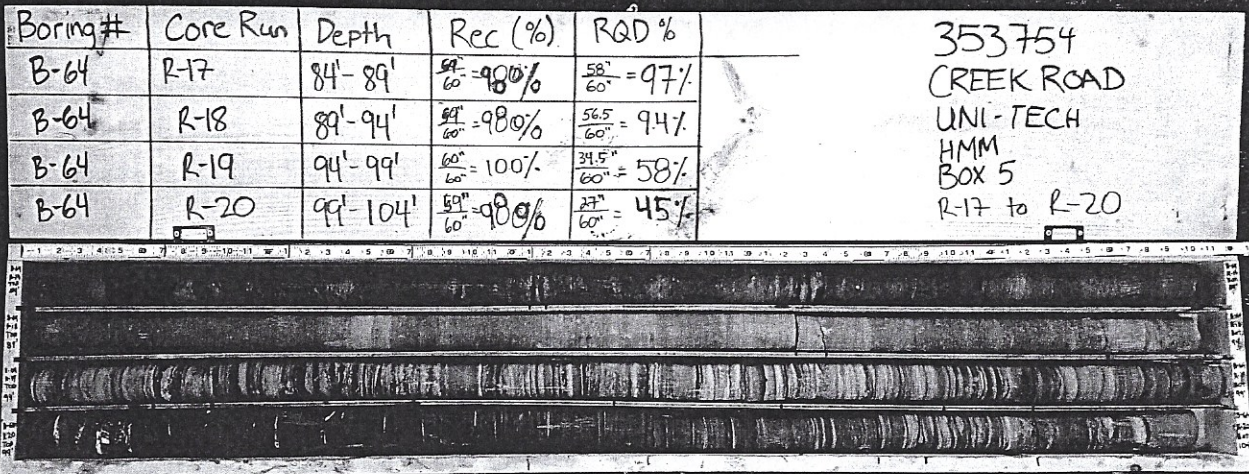 Boring# Core Run Depth Rec (%) RQD %
B-64 R-17 84'-89' 59"/60 = 98% 58"/60" = 97%
B-64 R-18 89'-94' 59"/60" = 98% 56.5/60" = 94%
B-64 R-19 94'-99' 60"/60" = 100% 34.5"/60" = 58%
B-64 R-20 99'-104' 59"/60" = 98% 27"/60" = 45%
353754
CREEK ROAD
UNI-TECH
HMM
BOX 5
R-17 to R-20